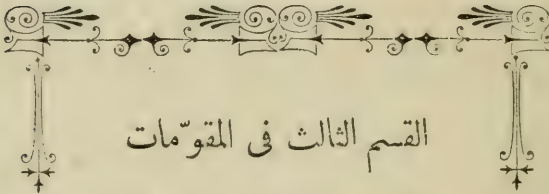 القسم الثالث فى المقوّمات